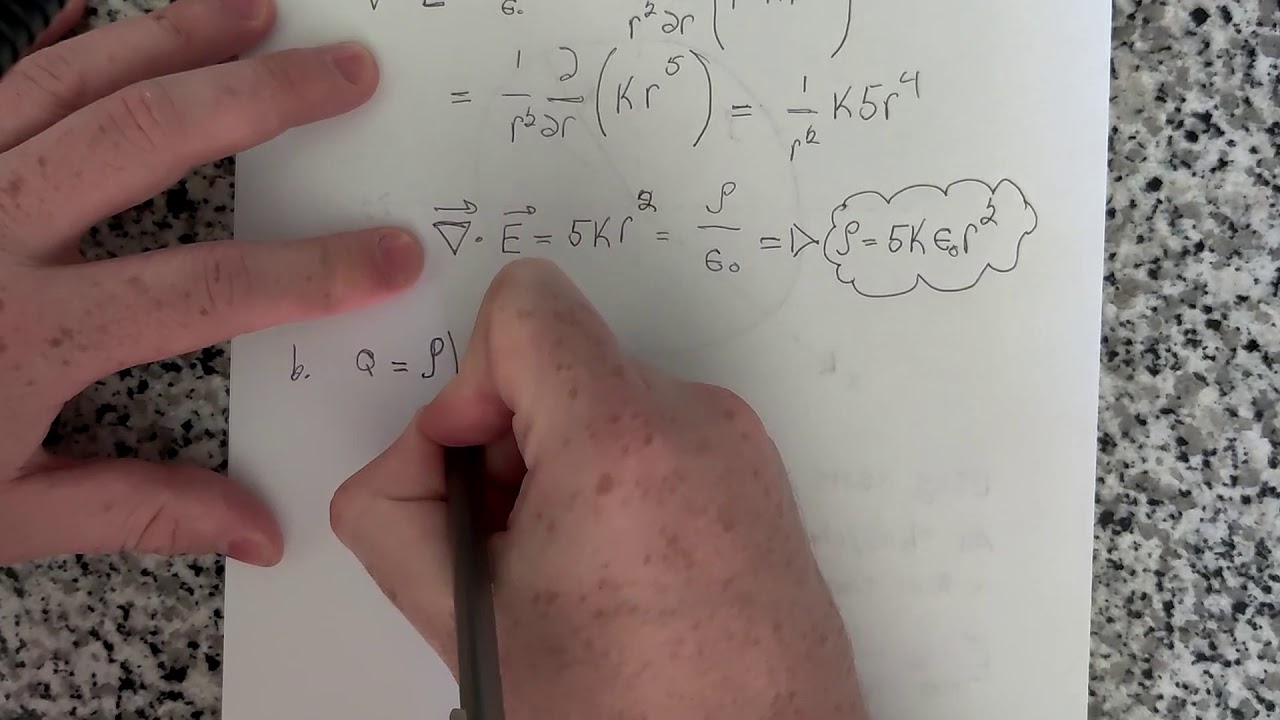 ε₀ r² ∂r (
= 1/r² ∂/∂r (Kr⁵) = 1/r² K5r⁴
∇⃗ · E⃗ = 5Kr² = ρ/ε₀ => ρ = 5Kε₀r²
b. Q = ρ